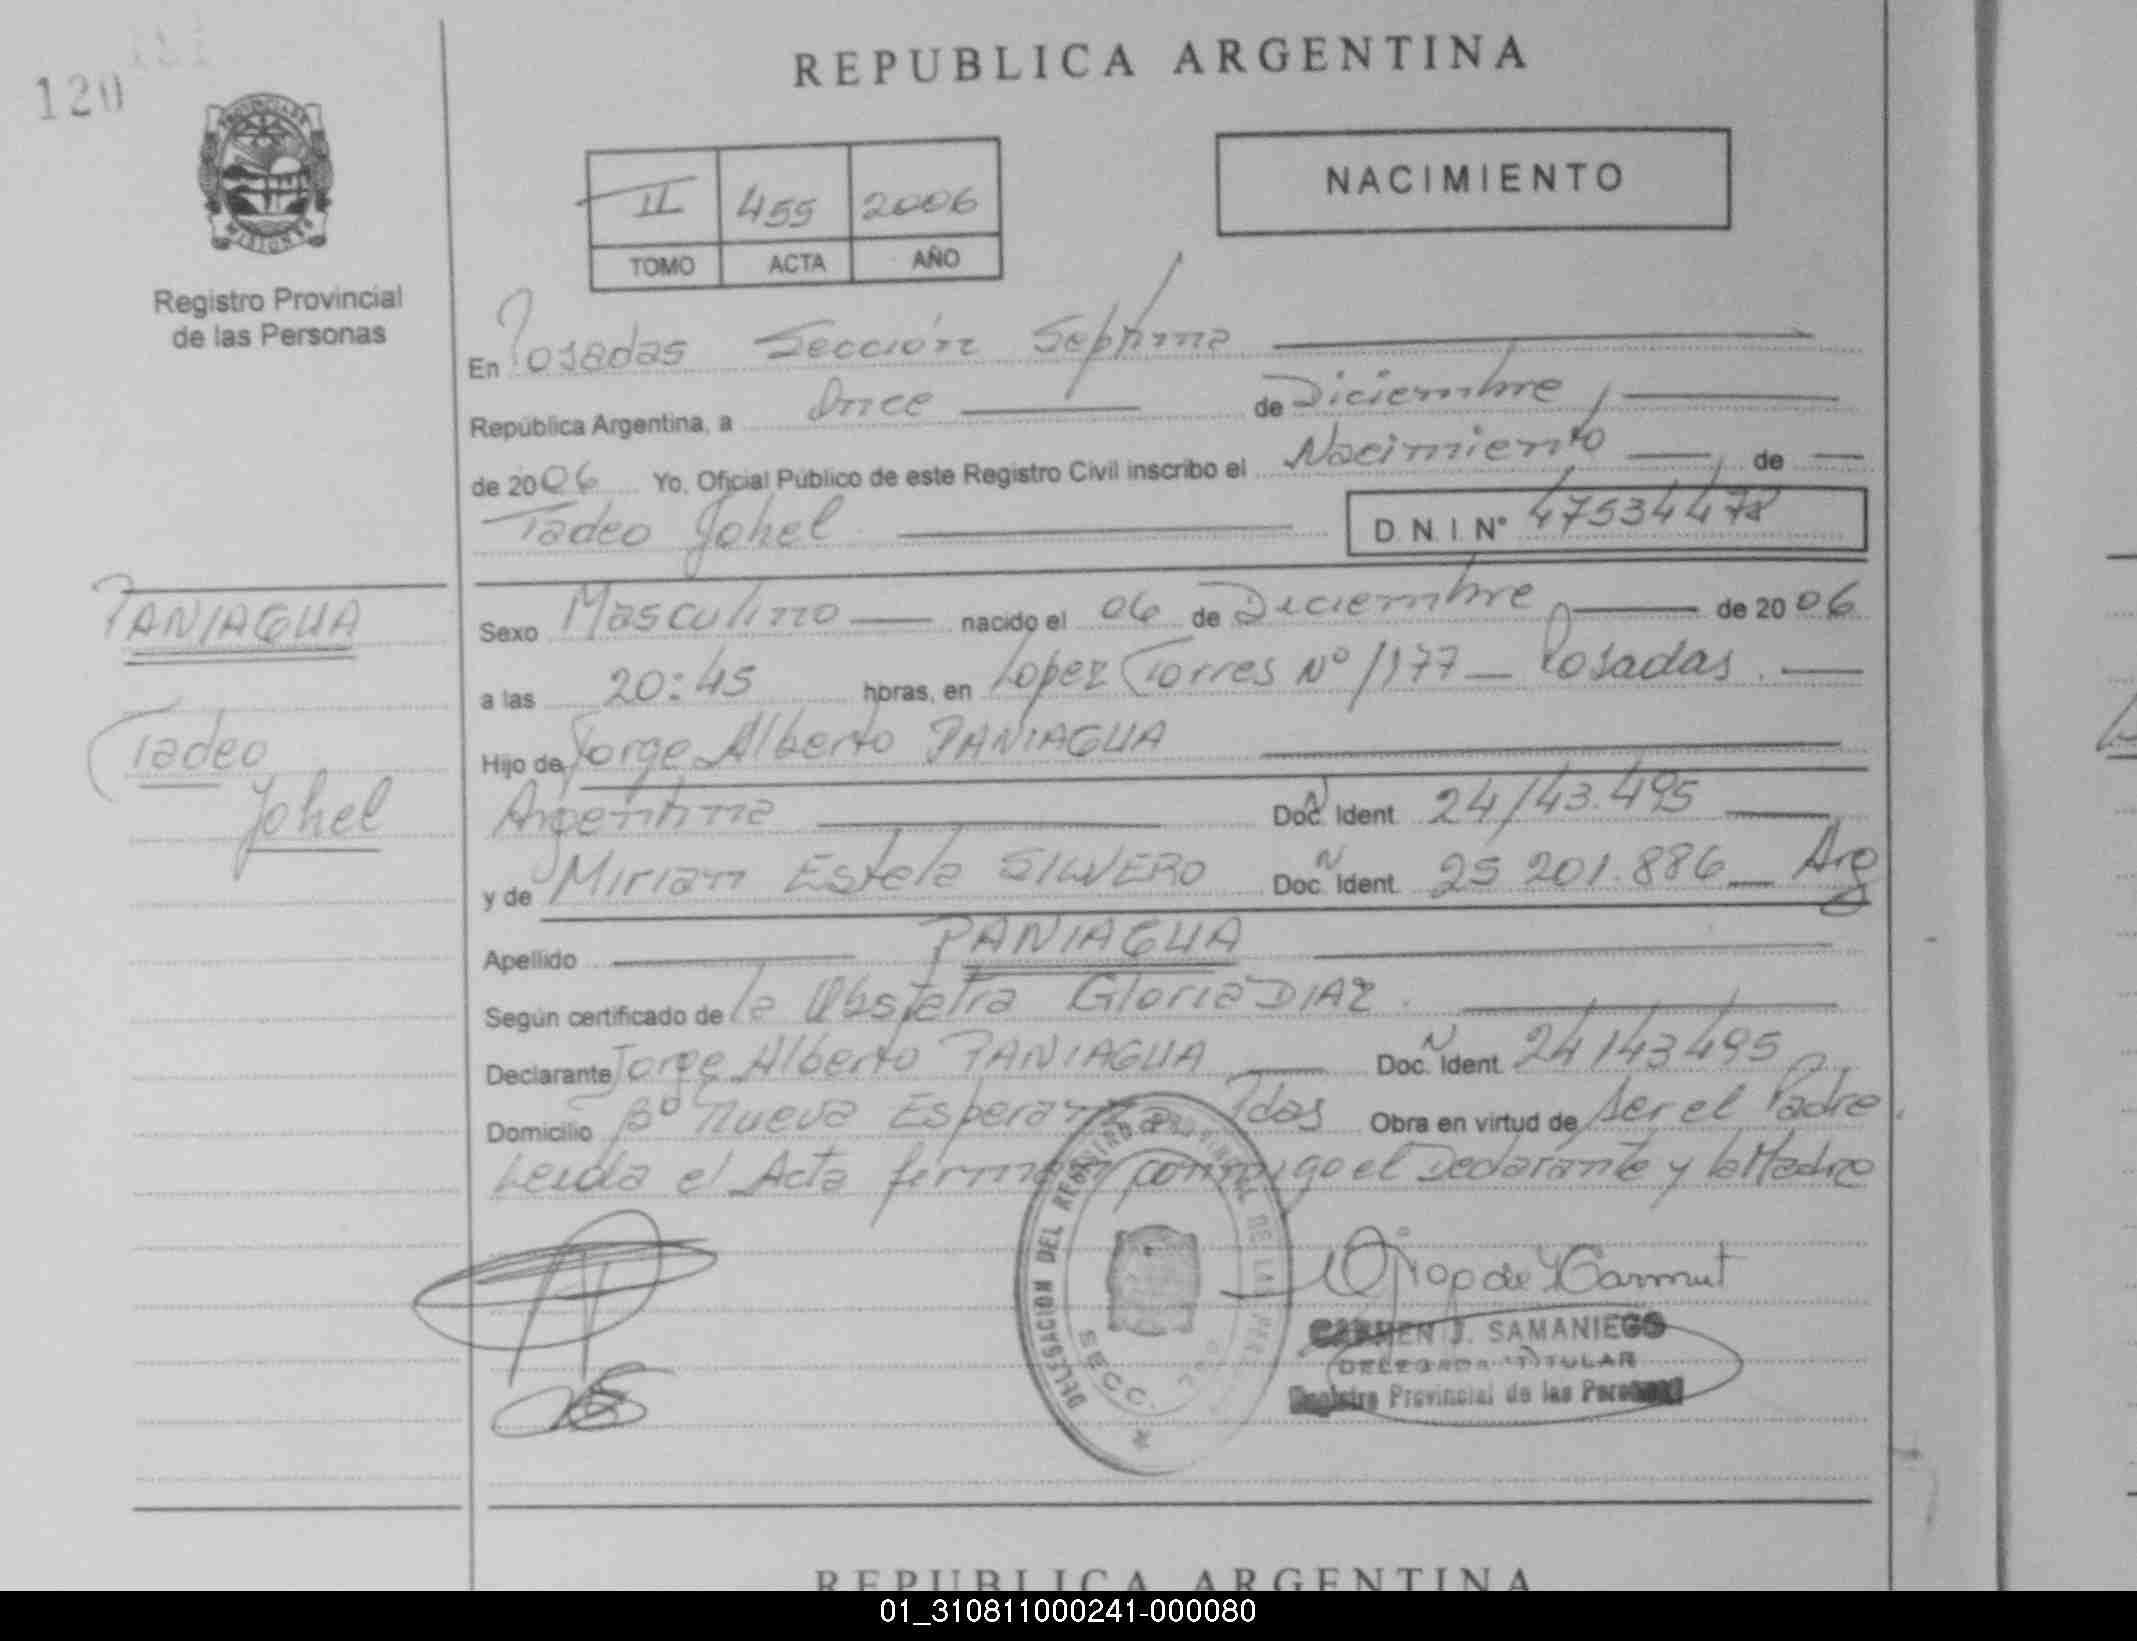 120
PROVINCIA DE
MISIONES
Registro Provincial
de las Personas
REPUBLICA ARGENTINA
II 455 2006
TOMO ACTA AÑO
NACIMIENTO
En Posadas Sección Septima
República Argentina, a Once de Diciembre
de 2006 Yo, Oficial Público de este Registro Civil inscribo el Nacimiento de
Tadeo Johel D.N.I. N° 47534478
PANIAGUA
Tadeo
Johel
Sexo Masculino nacido el 06 de Diciembre de 2006
a las 20:45 horas, en Lopez Torres Nº 1177 — Posadas.
Hijo de Jorge Alberto PANIAGUA
Argentina Doc. Ident. 24143.495
y de Mirian Estela SILVERO Doc. Ident. 25 201.886 — Arg
Apellido PANIAGUA
Según certificado de la Obstetra Gloria DIAZ.
Declarante Jorge Alberto PANIAGUA Doc. Ident. 24143495
Domicilio Bº Nueva Esperanza Pdas Obra en virtud de ser el Padre.
Leida el Acta firman conmigo el Declarante y la Madre
DELEGACION DEL REGISTRO PROVINCIAL DE LAS PERS
SECC.
CARMEN J. SAMANIEGO
DELEGADA TITULAR
Registro Provincial de las Personas
REPUBLICA ARGENTINA
01_310811000241-000080